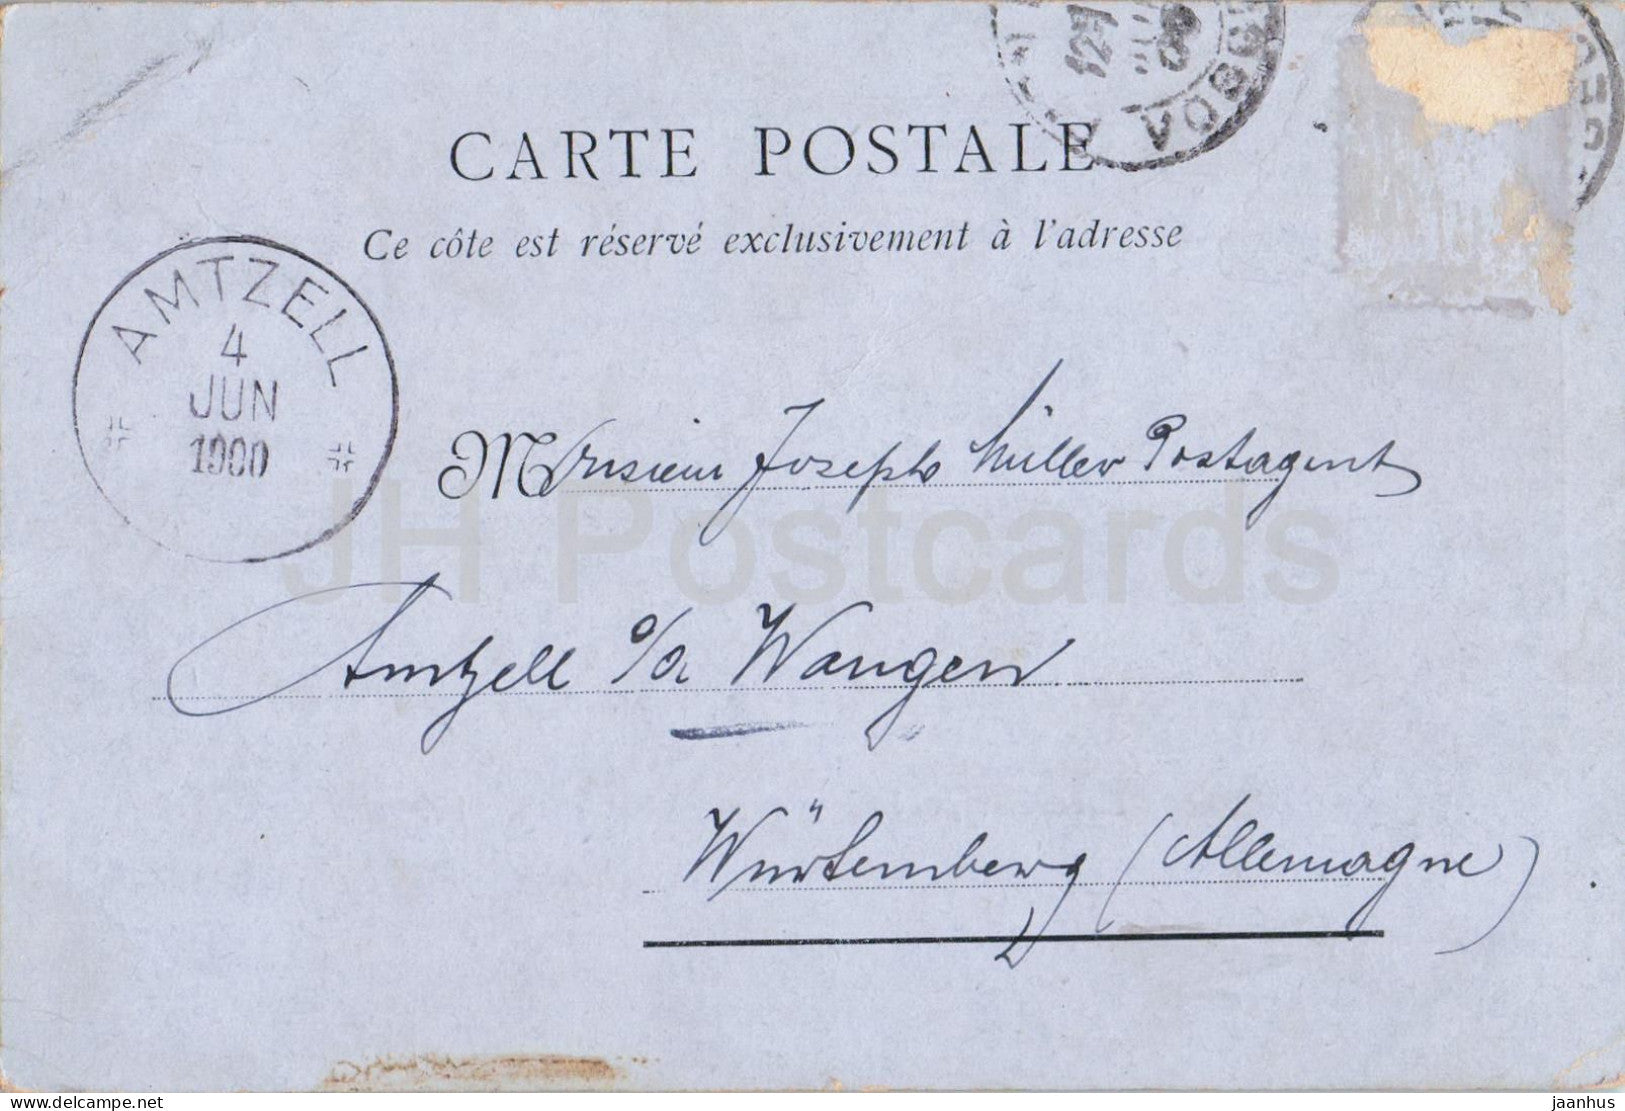 CARTE POSTALE
Ce côte est réservé exclusivement à l'adresse
AMTZELL
4
JUN
1900
Monsieur Joseph Müller Postagent
Amtzell o/a Wangen
Würtemberg (Allemagne)
JH Postcards
jaanhus